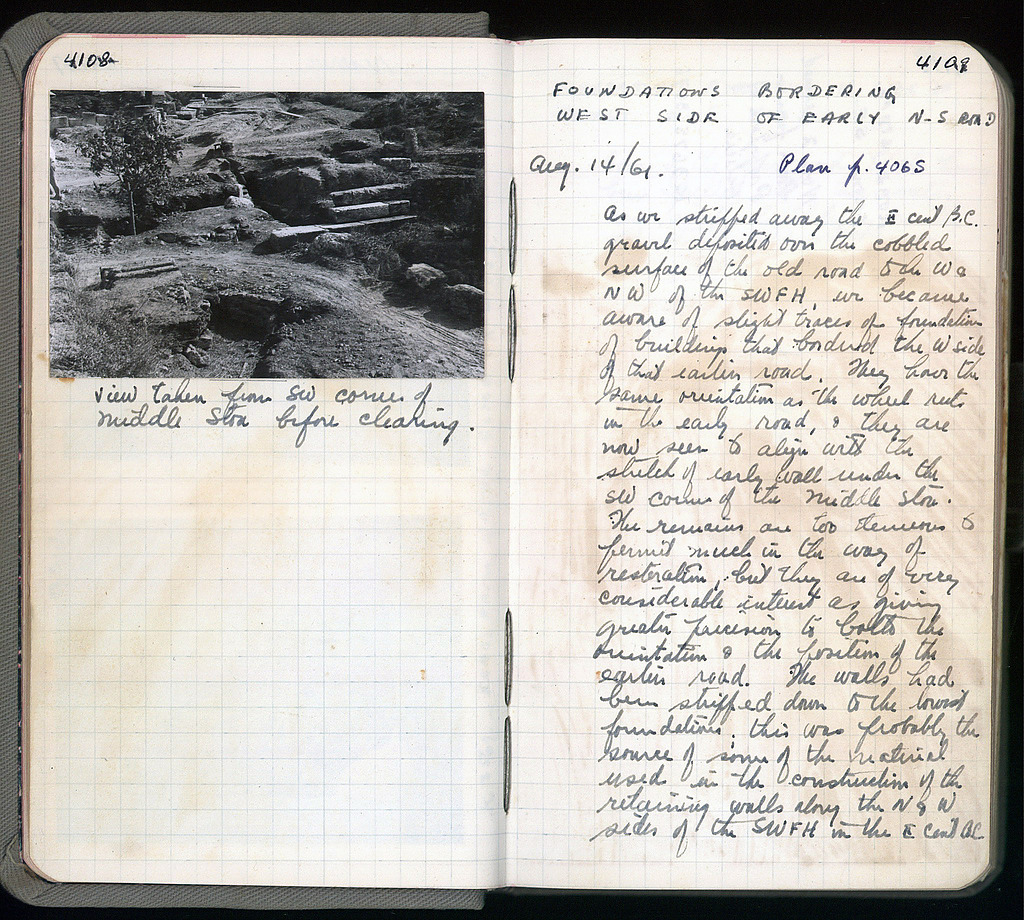 4108
View taken from SW corner of
Middle Stoa before clearing.
4109
FOUNDATIONS BORDERING
WEST SIDE OF EARLY N-S ROAD
Aug. 14/61. Plan p. 4065
As we stripped away the II cent B.C.
gravel deposited over the cobbled
surface of the old road to the W &
NW of the SWFH, we became
aware of slight traces of foundation
of buildings that bordered the W side
of that earlier road. They have the
same orientation as the wheel ruts
in the early road, & they are
now seen to align with the
stretch of early wall under the
SW corner of the Middle Stoa.
The remains are too tenuous to
permit much in the way of
restoration, but they are of very
considerable interest as giving
greater precision to both the
orientation & the position of the
earlier road. The walls had
been stripped down to the lowest
foundations; this was probably the
source of some of the material
used in the construction of the
retaining walls along the N & W
sides of the SWFH in the II cent B.C.